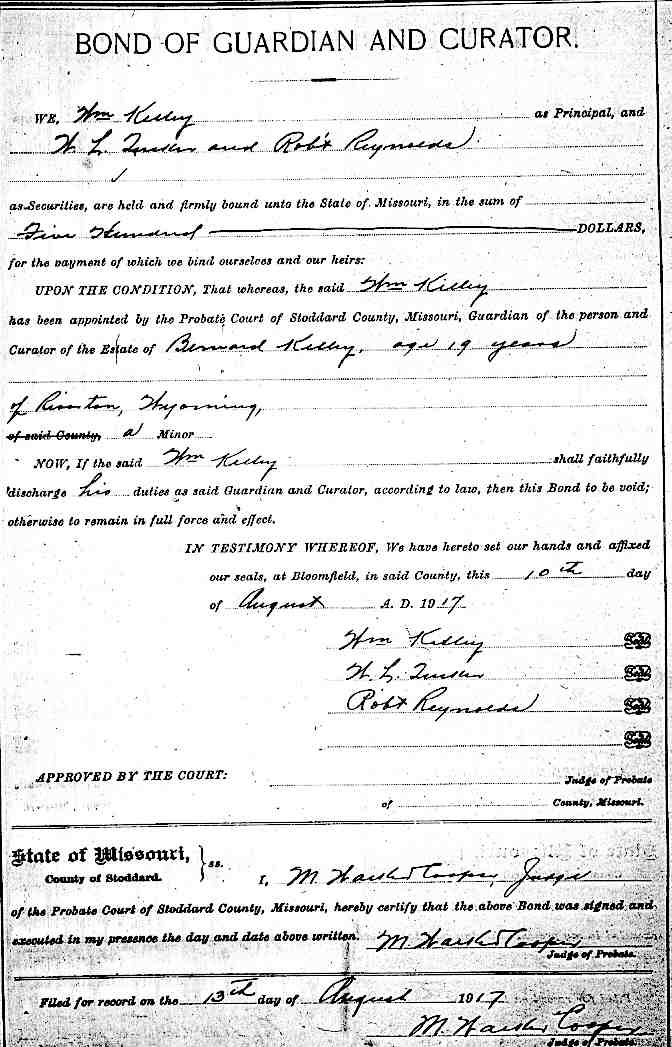 BOND OF GUARDIAN AND CURATOR.
WE, Wm Kelley as Principal, and
W. L. and Robt Reynolds
as Securities, are held and firmly bound unto the State of Missouri, in the sum of
Five Hundred DOLLARS,
for the payment of which we bind ourselves and our heirs:
UPON THE CONDITION, That whereas, the said Wm Kelley
has been appointed by the Probate Court of Stoddard County, Missouri, Guardian of the person and
Curator of the Estate of Bernard Kelley, age 19 years
of Riverton, Wyoming,
of said County, a Minor
NOW, If the said Wm Kelley shall faithfully
discharge his duties as said Guardian and Curator, according to law, then this Bond to be void;
otherwise to remain in full force and effect.
IN TESTIMONY WHEREOF, We have hereto set our hands and affixed
our seals, at Bloomfield, in said County, this 10th day
of August A. D. 1917
Wm Kelley Seal
W. L. Seal
Robt Reynolds Seal
Seal
APPROVED BY THE COURT:
Judge of Probate
of County, Missouri.
State of Missouri,
County of Stoddard. } ss.
I, M. Cooper, Judge
of the Probate Court of Stoddard County, Missouri, hereby certify that the above Bond was signed and
executed in my presence the day and date above written. M. Cooper
Judge of Probate.
Filed for record on the 13th day of August 1917
M. Cooper
Judge of Probate.